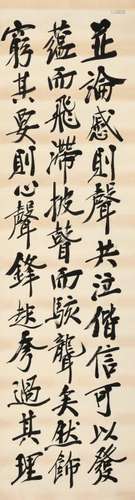 並論感則聲共泣偕信可以發
蘊而飛滯披瞽而駭聾矣然飾
窮其要則心聲鋒起夸過其理